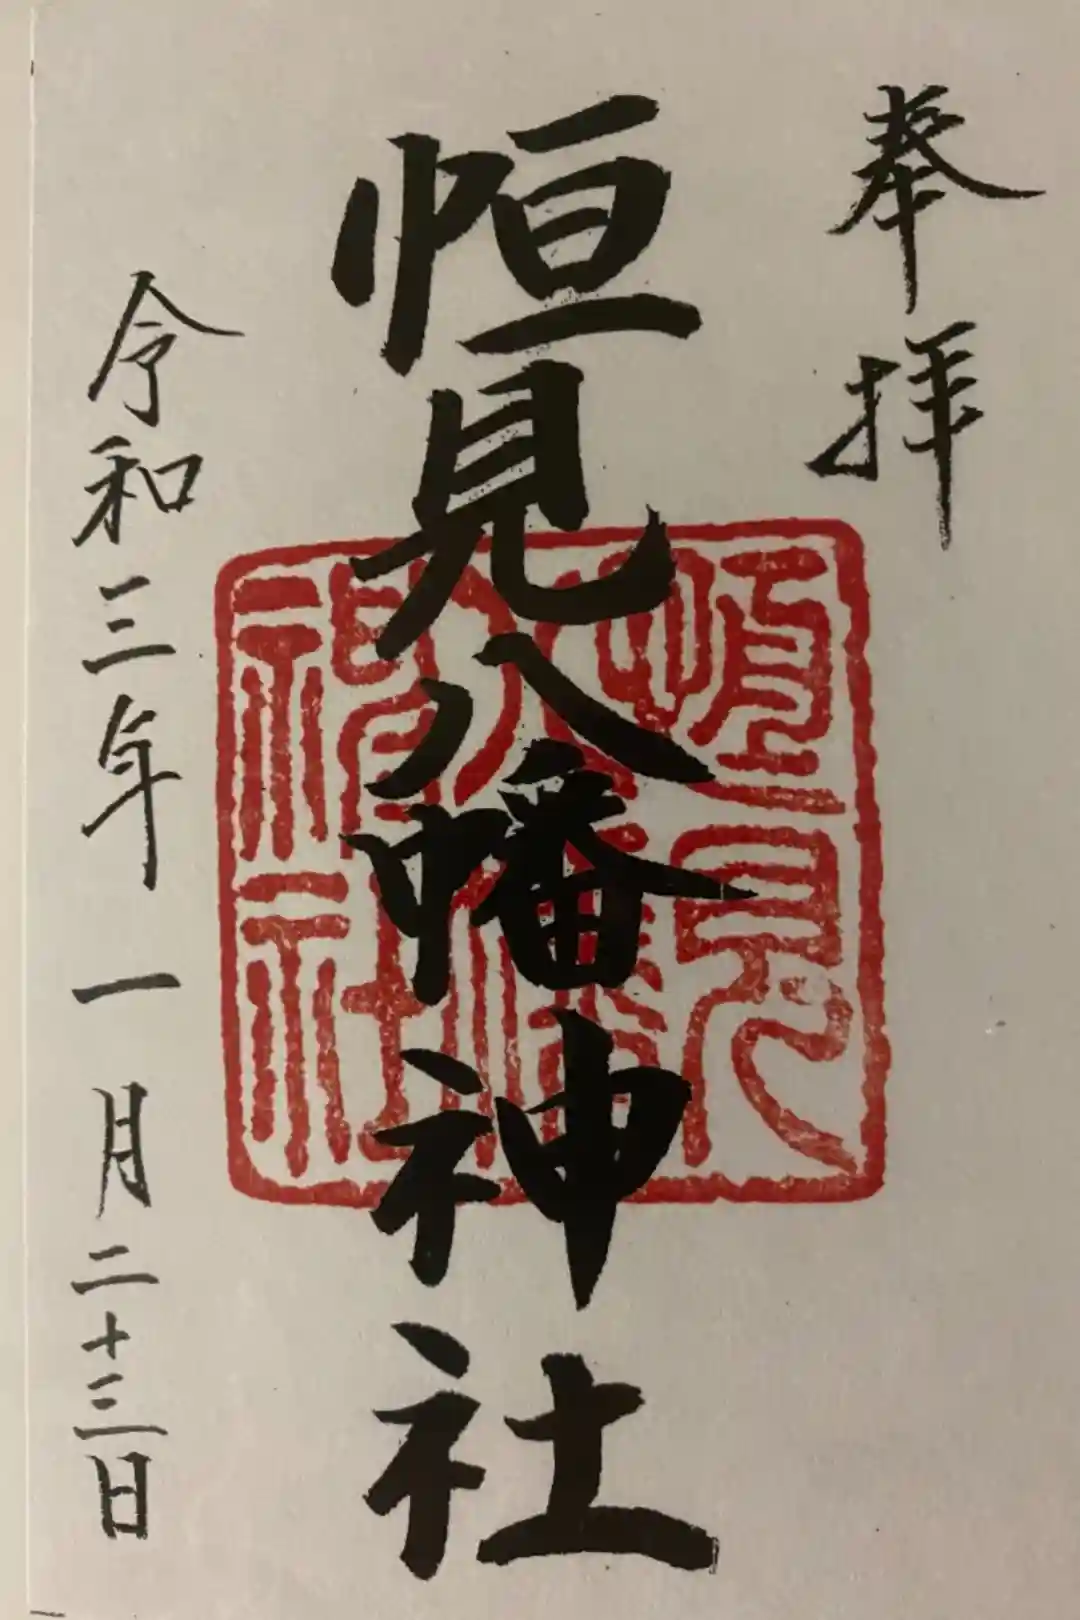 奉拝
恒見八幡神社
恒見
八幡
神社
令和三年 一月二十三日